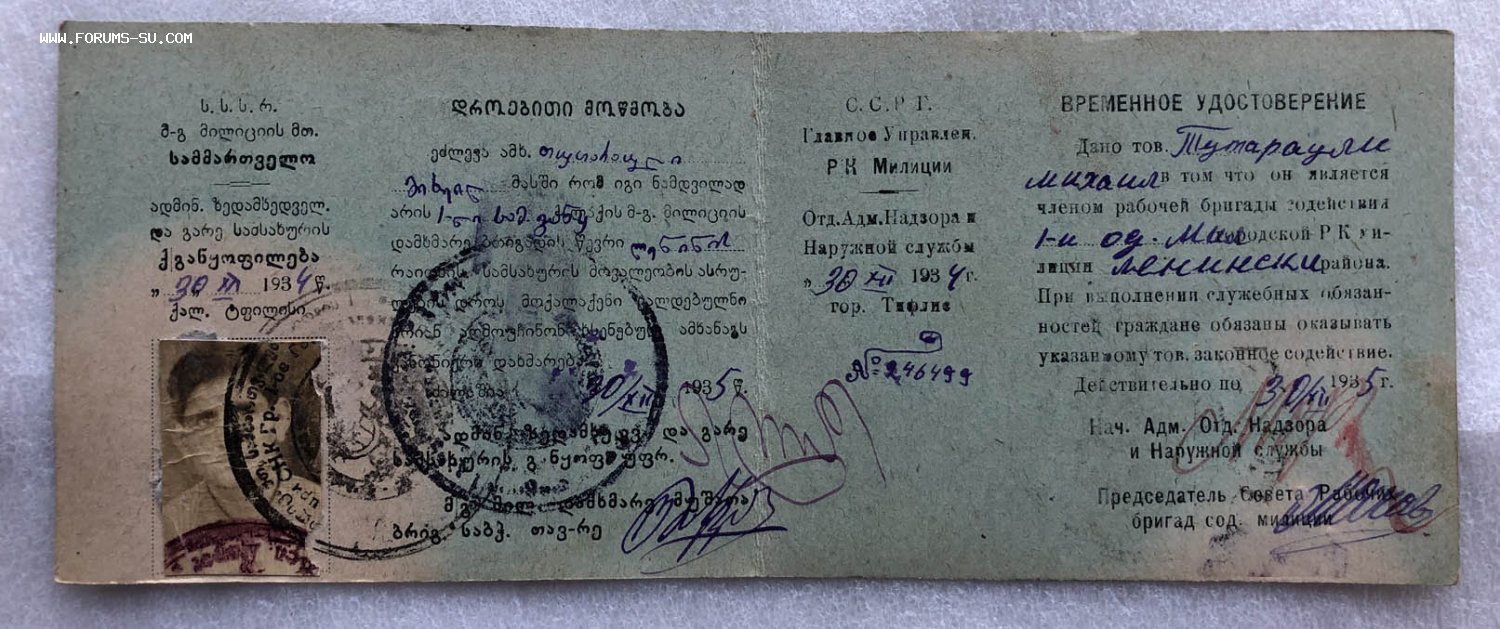 WWW.FORUMS-SU.COM
ს. ს. ს. რ.
მ-გ მილიციის მთ.
სამმართველო
ადმინ. ზედამსედველ.
და გარე სამსახურის
ქგანყოფილება
„ 30 XII 1934 წ.
ქალ. ტფილისი
დროებითი მოწმობა
ეძლევა ამხ. თუთარაული
მიხეილ მასში რომ იგი ნამდვილად
არის 1-ლი სამ. ქალაქის მ-გ. მილიციის
დამხმარე ბრიგადის წევრი ლენინის
რაიონის. სამსახურის მოვალეობის ასრუ-
ლების დროს მოქალაქენი ვალდებულნი
არიან აღმოუჩინონ ხსენებულ ამხანაგს
კანონიერი დახმარება.
30/XII 1935 წ.
ადმინ. ზედამსედვ. და გარე
სამსახურის განყოფ. უფრ.
მ-გ მილ. დამხმარე მუშათა
ბრიგ. საბჭ. თავ-რე
С. С. Р. Г.
Главное Управлен.
РК Милиции
Отд. Адм. Надзора и
Наружной службы
„ 30 XII 1934 г.
гор. Тифлис
№ 246499
ВРЕМЕННОЕ УДОСТОВЕРЕНИЕ
Дано тов. Тутараули
Михаил в том что он является
членом рабочей бригады содействия
1-и од. Мил городской РК ми-
лиции Ленински района.
При выполнении служебных обязан-
ностей граждане обязаны оказывать
указанному тов. законное содействие.
Действительно по 30/XII 1935 г.
Нач. Адм. Отд. Надзора
и Наружной службы
Председатель Совета Рабочих
бригад сод. милиции